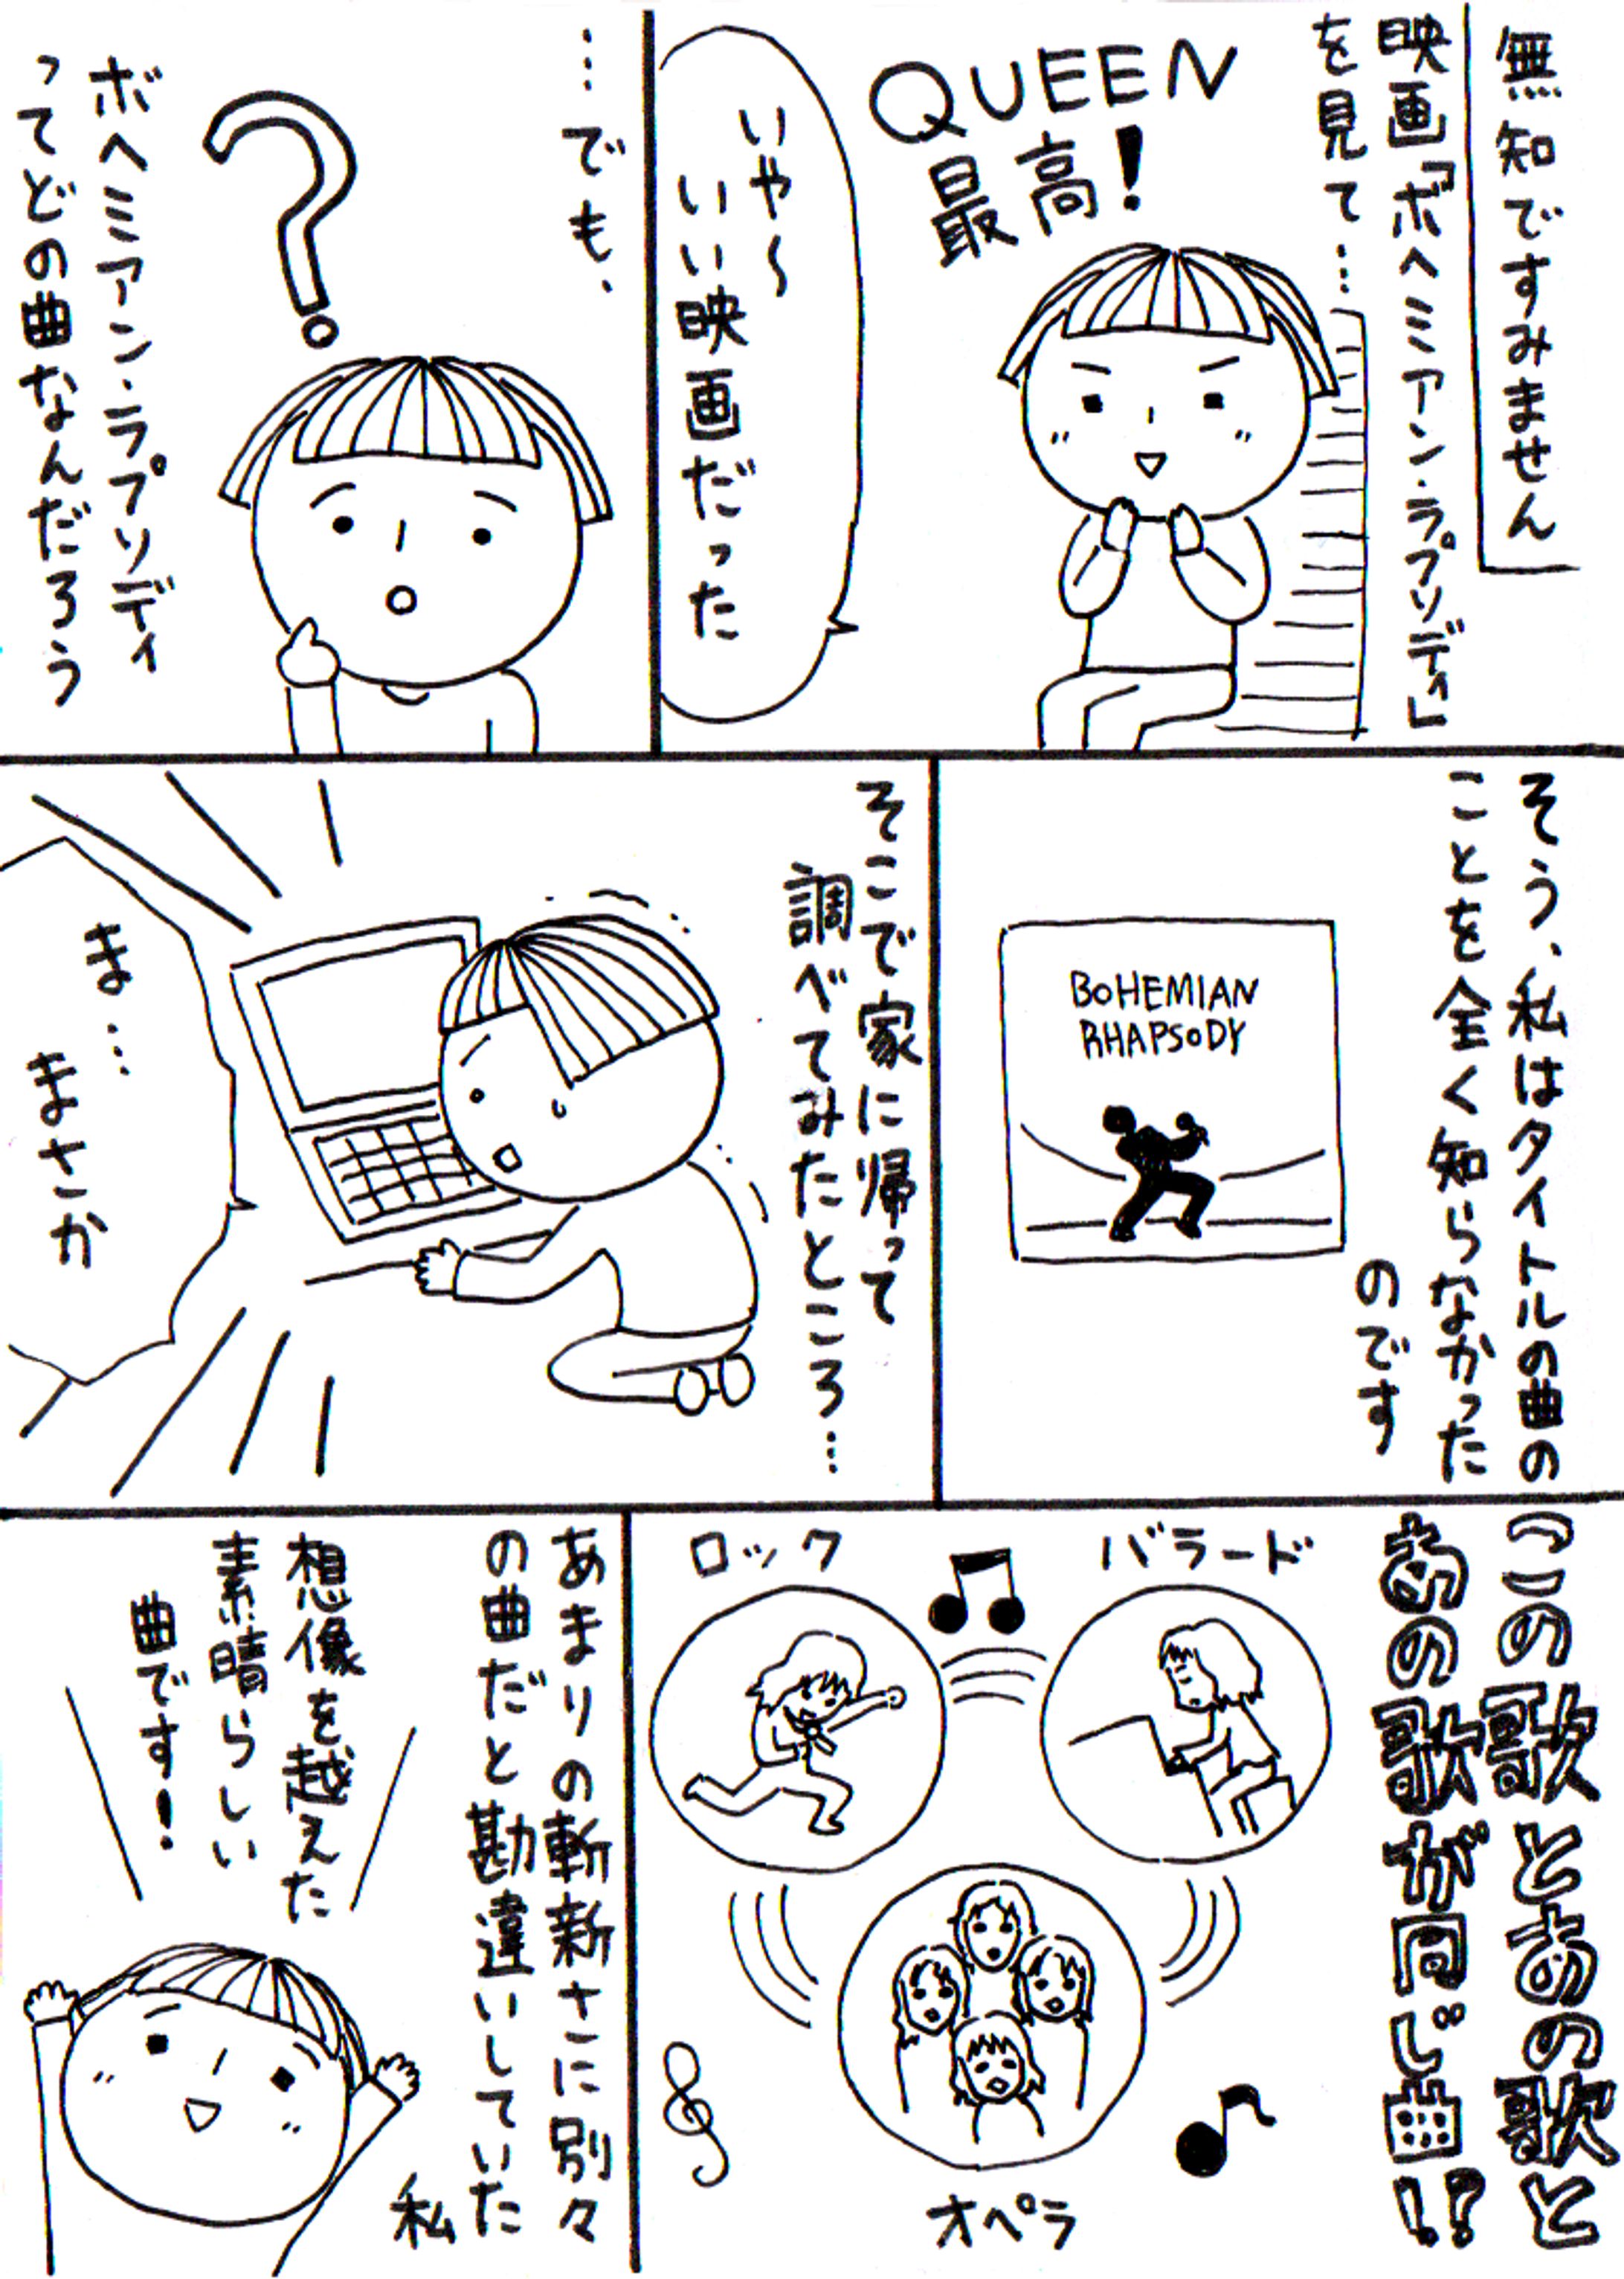 無知ですみません
映画「ボヘミアン・ラプソディ」
を見て…
QUEEN
最高!
いや〜
いい映画だった
…でも、
ボヘミアン・ラプソディ
ってどの曲なんだろう
そう、私はタイトルの曲の
ことを全く知らなかった
のです
BOHEMIAN
RHAPSODY
そこで家に帰って
調べてみたところ…
ま…
まさか
この歌とあの歌と
あの歌が同じ曲!?
バラード
ロック
オペラ
あまりの斬新さに別々
の曲だと勘違いしていた
私
想像を越えた
素晴らしい
曲です!